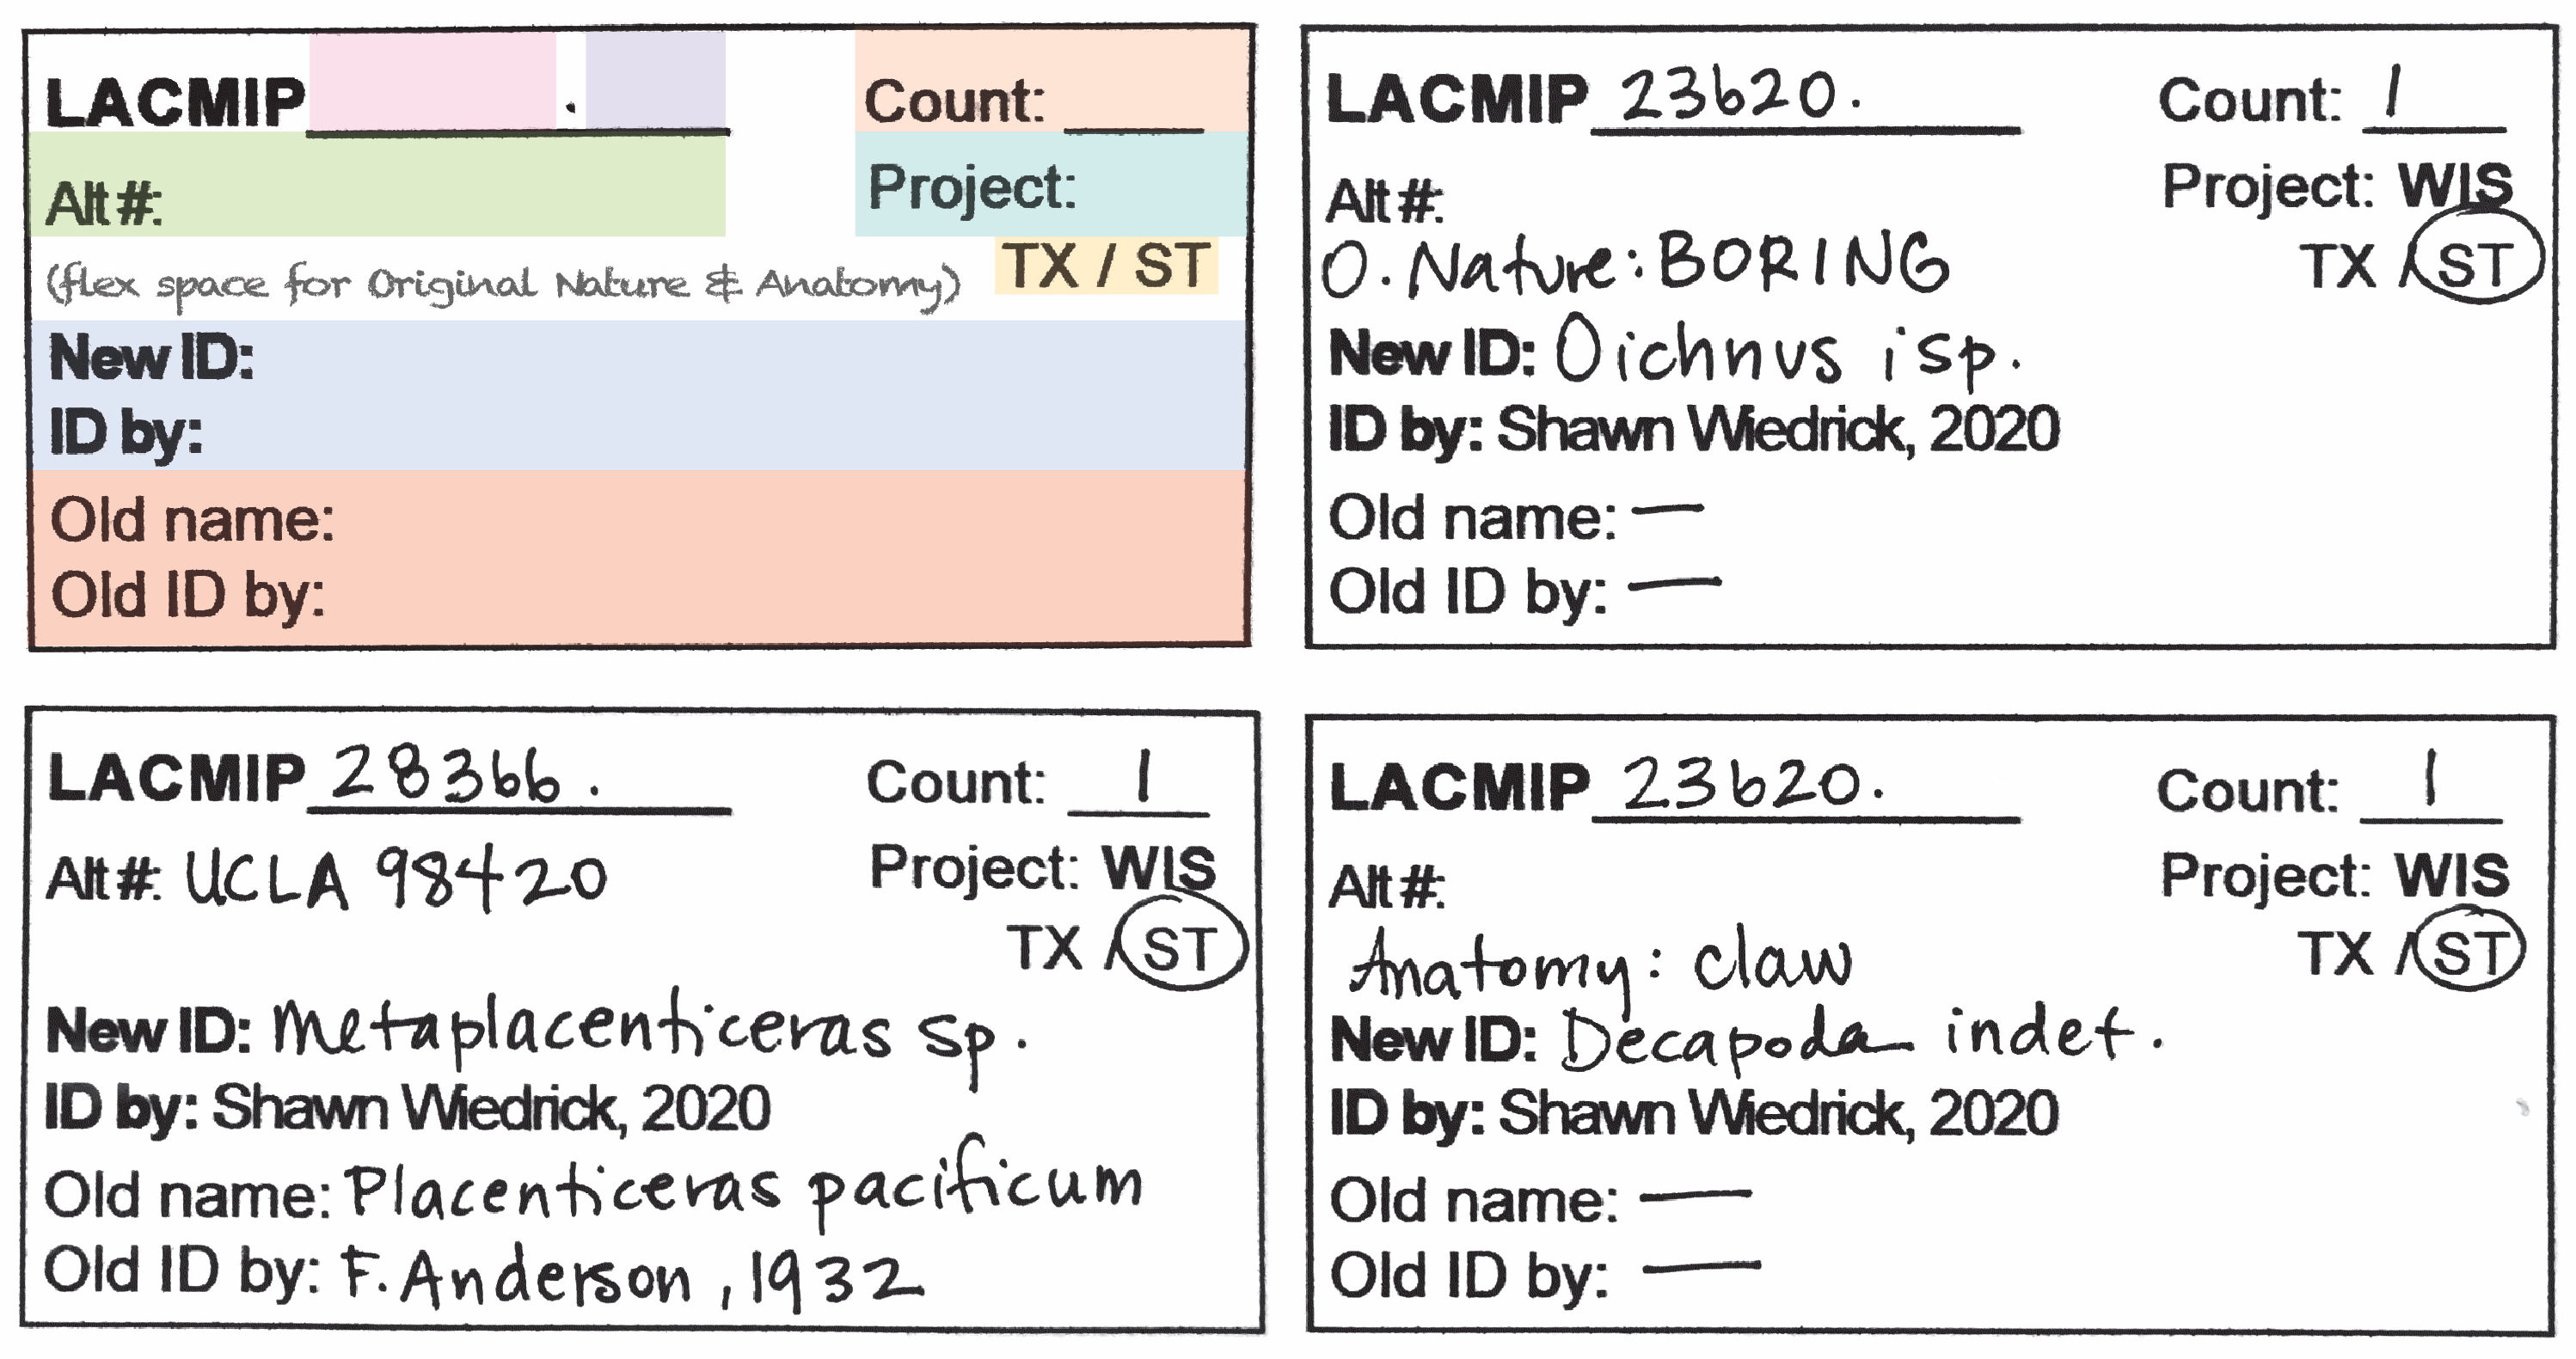 LACMIP .
Count:
Alt #:
Project:
(flex space for Original Nature & Anatomy)
TX / ST
New ID:
ID by:
Old name:
Old ID by:
LACMIP 23620.
Count: 1
Alt #:
Project: WIS
O. Nature: BORING
TX / ST
New ID: Oichnus isp.
ID by: Shawn Wiedrick, 2020
Old name: —
Old ID by: —
LACMIP 28366.
Count: 1
Alt #: UCLA 98420
Project: WIS
TX / ST
New ID: Metaplacenticeras sp.
ID by: Shawn Wiedrick, 2020
Old name: Placenticeras pacificum
Old ID by: F. Anderson, 1932
LACMIP 23620.
Count: 1
Alt #:
Project: WIS
Anatomy: claw
TX / ST
New ID: Decapoda indet.
ID by: Shawn Wiedrick, 2020
Old name: —
Old ID by: —